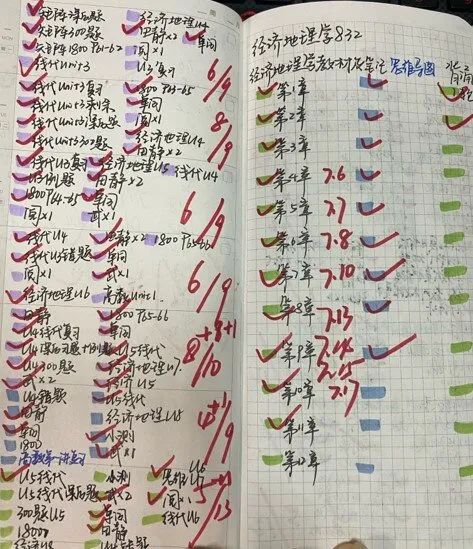 矩阵课后题 经济地理U4
矩阵300题 田静×2 单词
矩阵1800 P61-62 阅×1
线代Unit3 U3复习
线代Unit3复习 1800 P63-65
6/9
线代Unit3剩余 单词
线代Unit3课后题 阅×1
8/9
线代Unit3 300题 经济地理U4
田静×2
线代U3复习 经济地理U5 线代U4
U3例题 田静×2
1800 P64-65 单词
阅×1 武×1
6/9
线代U4 田静×2 1800 P65-66
线代U3错题 单词
阅×1 武×1
经济地理U6 高数Unit1
6/9
田静 1800 P65-66
U4线代复习 单词
U4课后习题+例题 U5线代
U4 300题 经济地理U7
武×2 线代U5
8+1+1/10
U4错题 阅×1
田静 经济地理U8
单词 小测
1800 武×1
高数第一讲复习
4+1/9
U5线代 小测
U5线代课后题 武×2 阅×1
300题U5 单词 线代U6
1800 田静
5+4/13
经济地理学832
经济地理学教材及笔记 思维导图
第1章
第2章
第3章
第4章 7.6
第5章 7.7
第6章 7.8
第7章 7.10
第8章 7.13
第9章 7.14
7.15
第10章 7.17
第11章
第12章